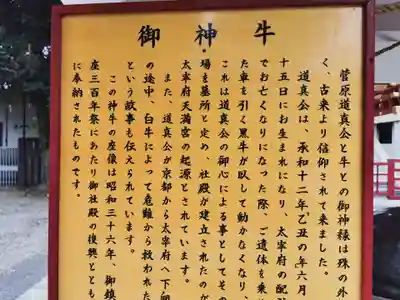 御神牛
菅原道真公と牛との御神縁は殊の外
く、古来より信仰されて来ました。
道真公は、承和十二年乙丑の年六月
十五日にお生まれになり、太宰府の配
でお亡くなりになった際、ご遺体を乗
た車を引く黒牛が臥して動かなくなり、
これは道真公の御心による事としてその
場を墓所と定め、社殿が建立されたのが
太宰府天満宮の起源とされています。
また、道真公が京都から太宰府へ下向
の途中、白牛によって危難から救われた
という故事も伝えられています。
この神牛の座像は昭和三十六年、御鎮
座三百年祭にあたり御社殿の復興ととも
に奉納されたものです。